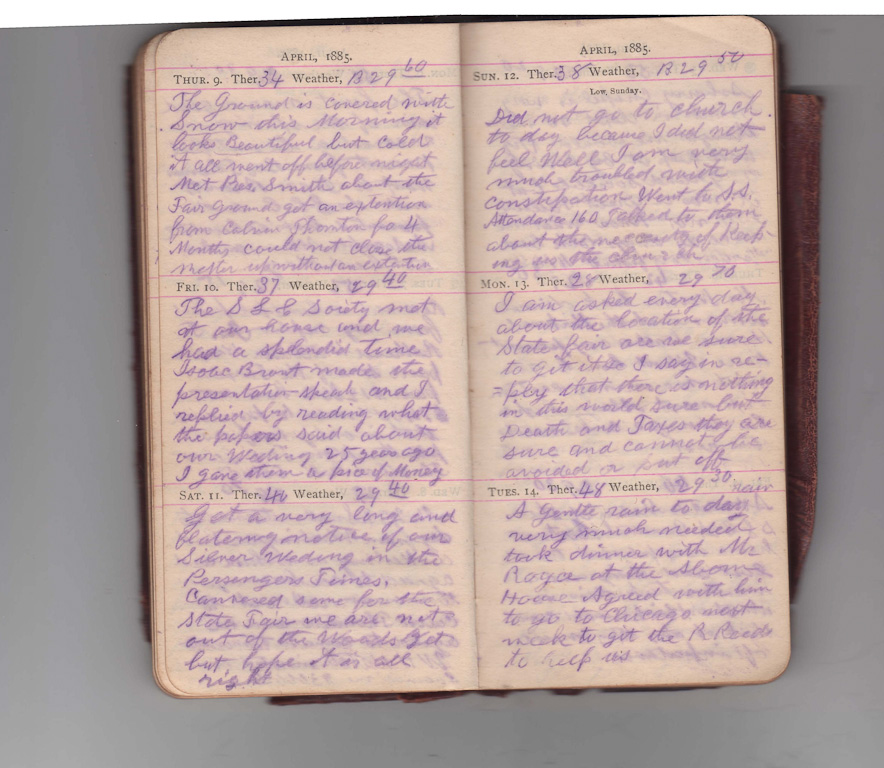 APRIL, 1885.
THUR. 9. Ther. 34 Weather, B 29 60
The Ground is covered with
Snow this Morning it
looks Beautiful but cold
it all went off before night
Met Pres. Smith about the
Fair Ground got an extention
from Calvin Thornton for 4
Months could not close the
matter up without an extention
FRI. 10. Ther. 37 Weather, 29 40
The S L S Society met
at our house and we
had a splendid time
Isaac Brant made the
presentation speach and I
replied by reading what
the papers said about
our Weding 25 years ago
I gave them a pice of Money
SAT. 11. Ther. 40 Weather, 29 40
Got a very long and
flatering notice of our
Silver Weding in the
Persengers Times.
Canvased some for the
State Fair we are not
out of the Woods yet
but hope it is all
right
APRIL, 1885.
SUN. 12. Ther. 38 Weather, B 29 50
Low, Sunday.
Did not go to church
to day because I did not
feel Well I am very
much troubled with
constipation Went to S.S.
Attendance 160 Talked to them
about the necessity of Keep-
ing in the church
MON. 13. Ther. 28 Weather, 29 70
I am asked every day
about the location of the
State fair are we sure
to get it so I say in re-
=ply that there is nothing
in this world sure but
Death and Taxes they are
sure and cannot be
avoided or put off
TUES. 14. Ther. 48 Weather, 29 30 rain
A Gentle rain to day
very much needed
took dinner with Mr
Royce at the
House Agreed with him
to go to Chicago next
week to get the R Roads
to help us